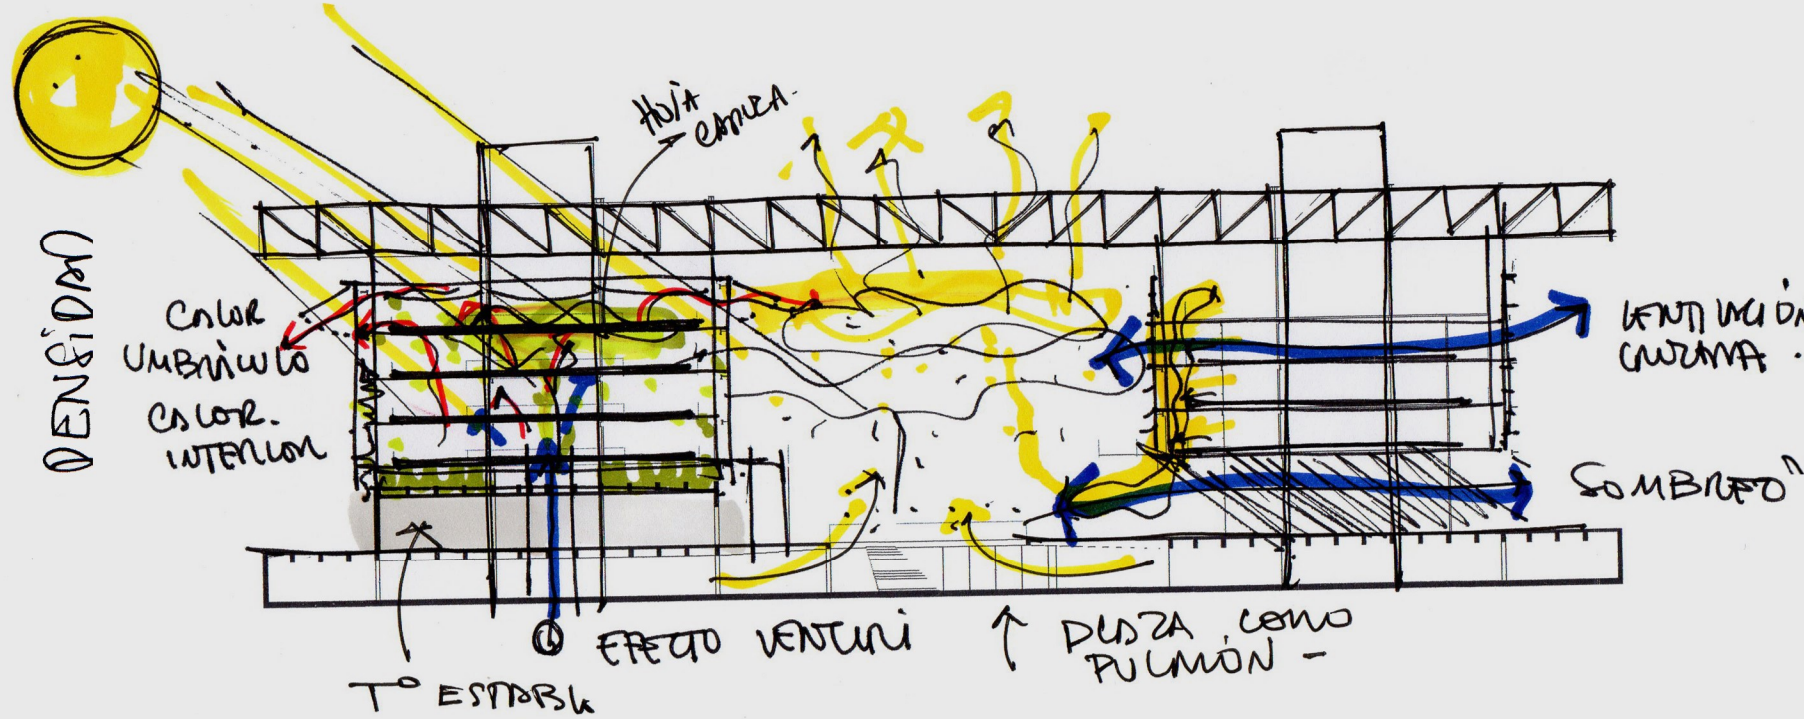 DENSIDAD
HOJA
CALOR
UMBRÁCULO
CALOR.
INTERIOR
VENTILACIÓN
CRUZADA.
SOMBREO
EFECTO VENTURI
PLAZA COMO
PULMÓN -
Tº ESTABLE